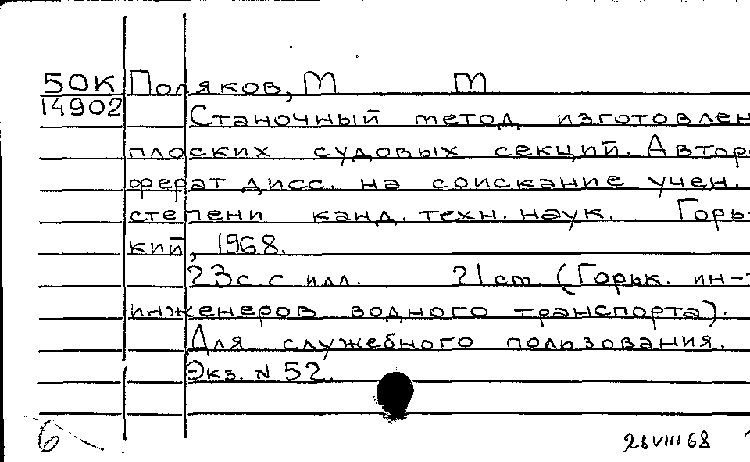 50К Поляков, М М
14902 Станочный метод изготовлен
плоских судовых секций. Авторе
ферат дисс. на соискание учен.
степени канд. техн. наук. Горь
кий, 1968.
23с. с илл. 21см (Горьк. ин-т
инженеров водного транспорта).
Для служебного пользования.
Экз. N 52.
6 28VIII68